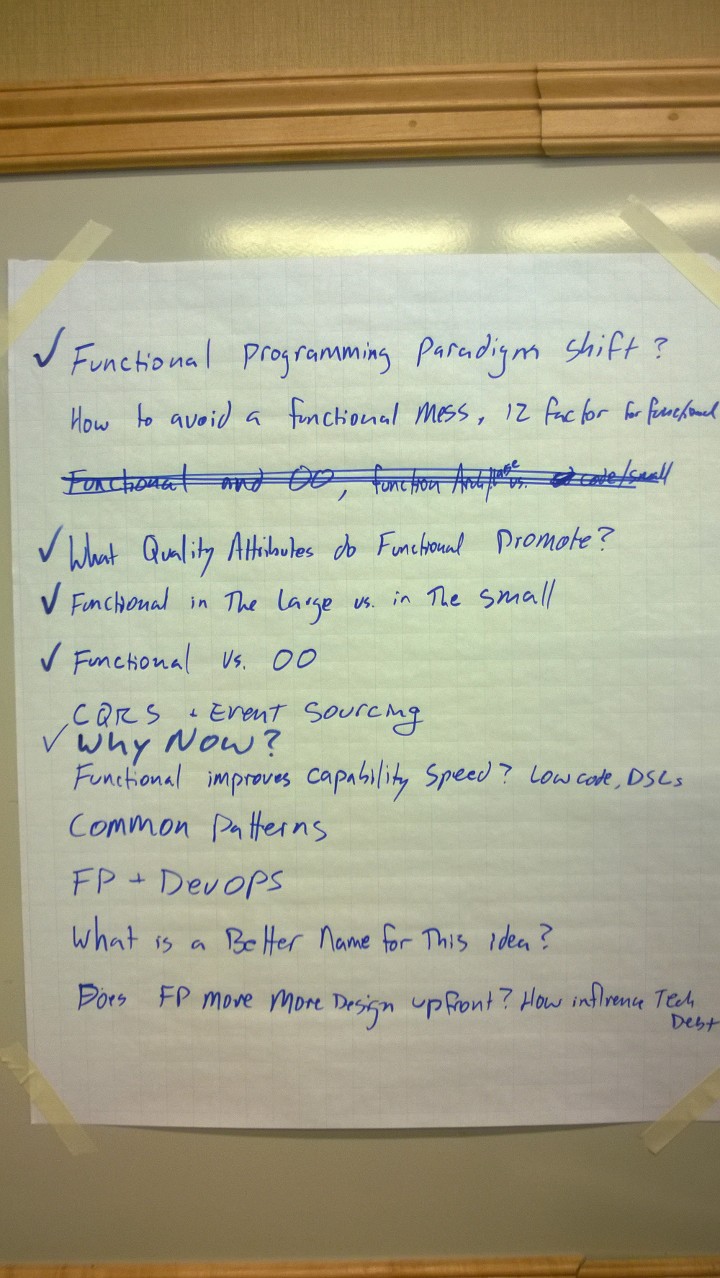 ✓ Functional Programming Paradigm shift?
How to avoid a functional mess, 12 factor for functional
Functional and OO, function vs. code/small
✓ What Quality Attributes do Functional Promote?
✓ Functional in The Large vs. in The small
✓ Functional Vs. OO
CQRS + Event Sourcing
✓ Why Now?
Functional improves capability speed? Low code, DSLs
Common Patterns
FP + DevOPS
What is a Better Name for This idea?
Does FP move more Design upfront? How influence Tech
Debt